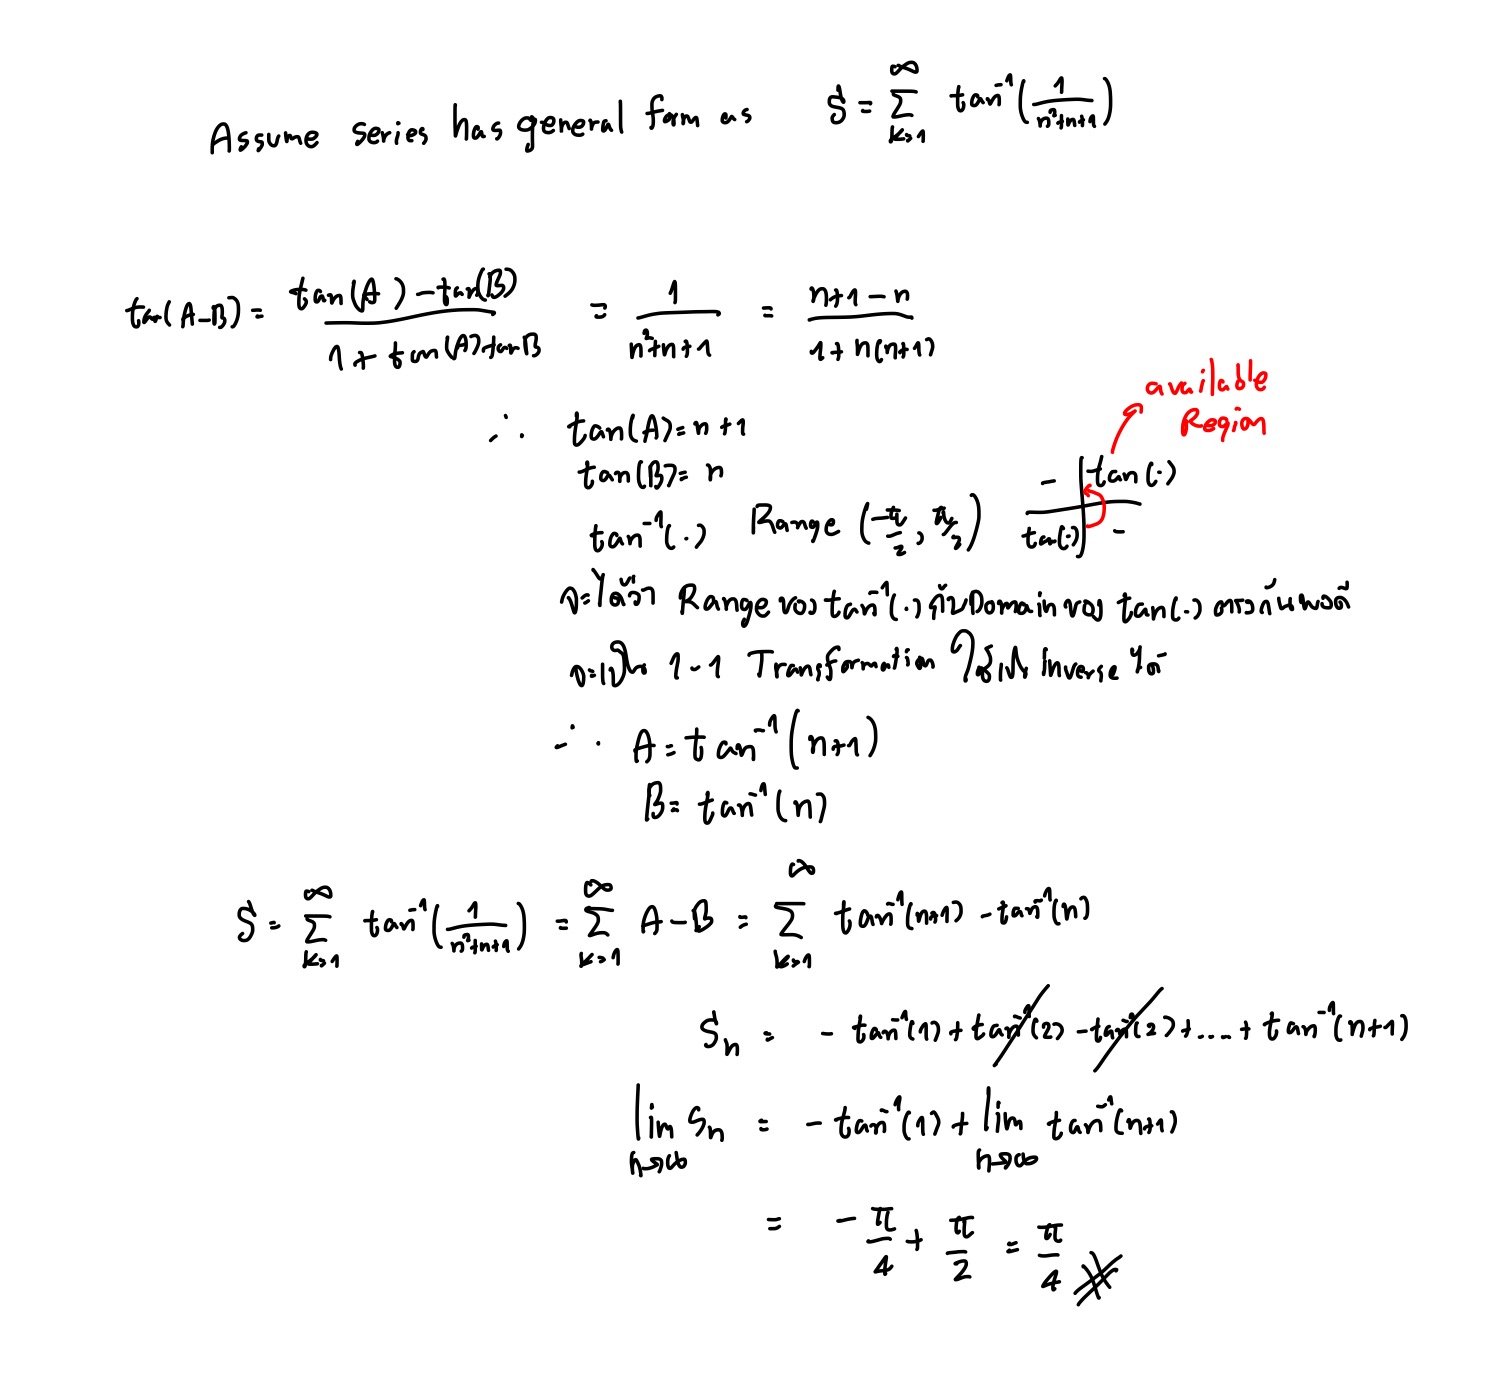 Assume series has general form as S = ∑_{k=1}^{∞} tan⁻¹(1/(n²+n+1))
tan(A-B) = (tan(A) - tan(B))/(1 + tan(A)tanB) = 1/(n²+n+1) = (n+1-n)/(1+n(n+1))
available
Region
∴ tan(A) = n+1
tan(B) = n
- tan(·)
tan⁻¹(·) Range (-π/2, π/2) tan(·) -
จะได้ว่า Range ของ tan⁻¹(·) กับ Domain ของ tan(·) ตรงกันพอดี
จะเป็น 1-1 Transformation ใช้เป็น Inverse ได้
∴ A = tan⁻¹(n+1)
B = tan⁻¹(n)
S = ∑_{k=1}^{∞} tan⁻¹(1/(n²+n+1)) = ∑_{k=1}^{∞} A-B = ∑_{k=1}^{∞} tan⁻¹(n+1) - tan⁻¹(n)
Sn = - tan⁻¹(1) + tan⁻¹(2) - tan⁻¹(2) + .... + tan⁻¹(n+1)
lim_{n→∞} Sn = - tan⁻¹(1) + lim_{n→∞} tan⁻¹(n+1)
= - π/4 + π/2 = π/4